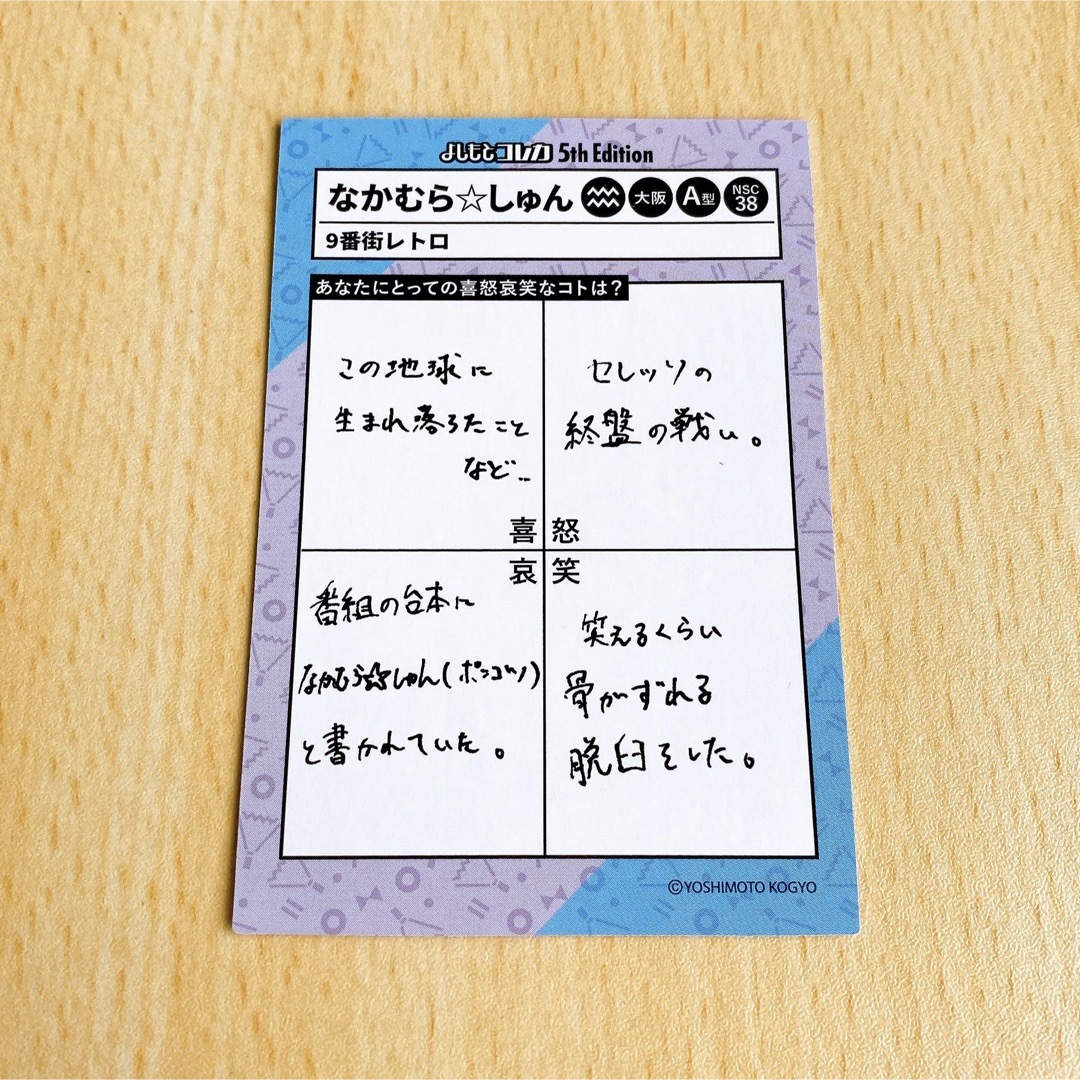 よしもとコレカ 5th Edition
なかむら☆しゅん 大阪 A型 NSC 38
9番街レトロ
あなたにとっての喜怒哀笑なコトは？
この地球に
生まれ落ちたこと
など…
喜
セレッソの
終盤の戦い。
怒
哀
番組の台本に
なかむら☆しゅん(ポンコツ)
と書かれていた。
笑
笑えるくらい
骨がずれる
脱臼をした。
©YOSHIMOTO KOGYO